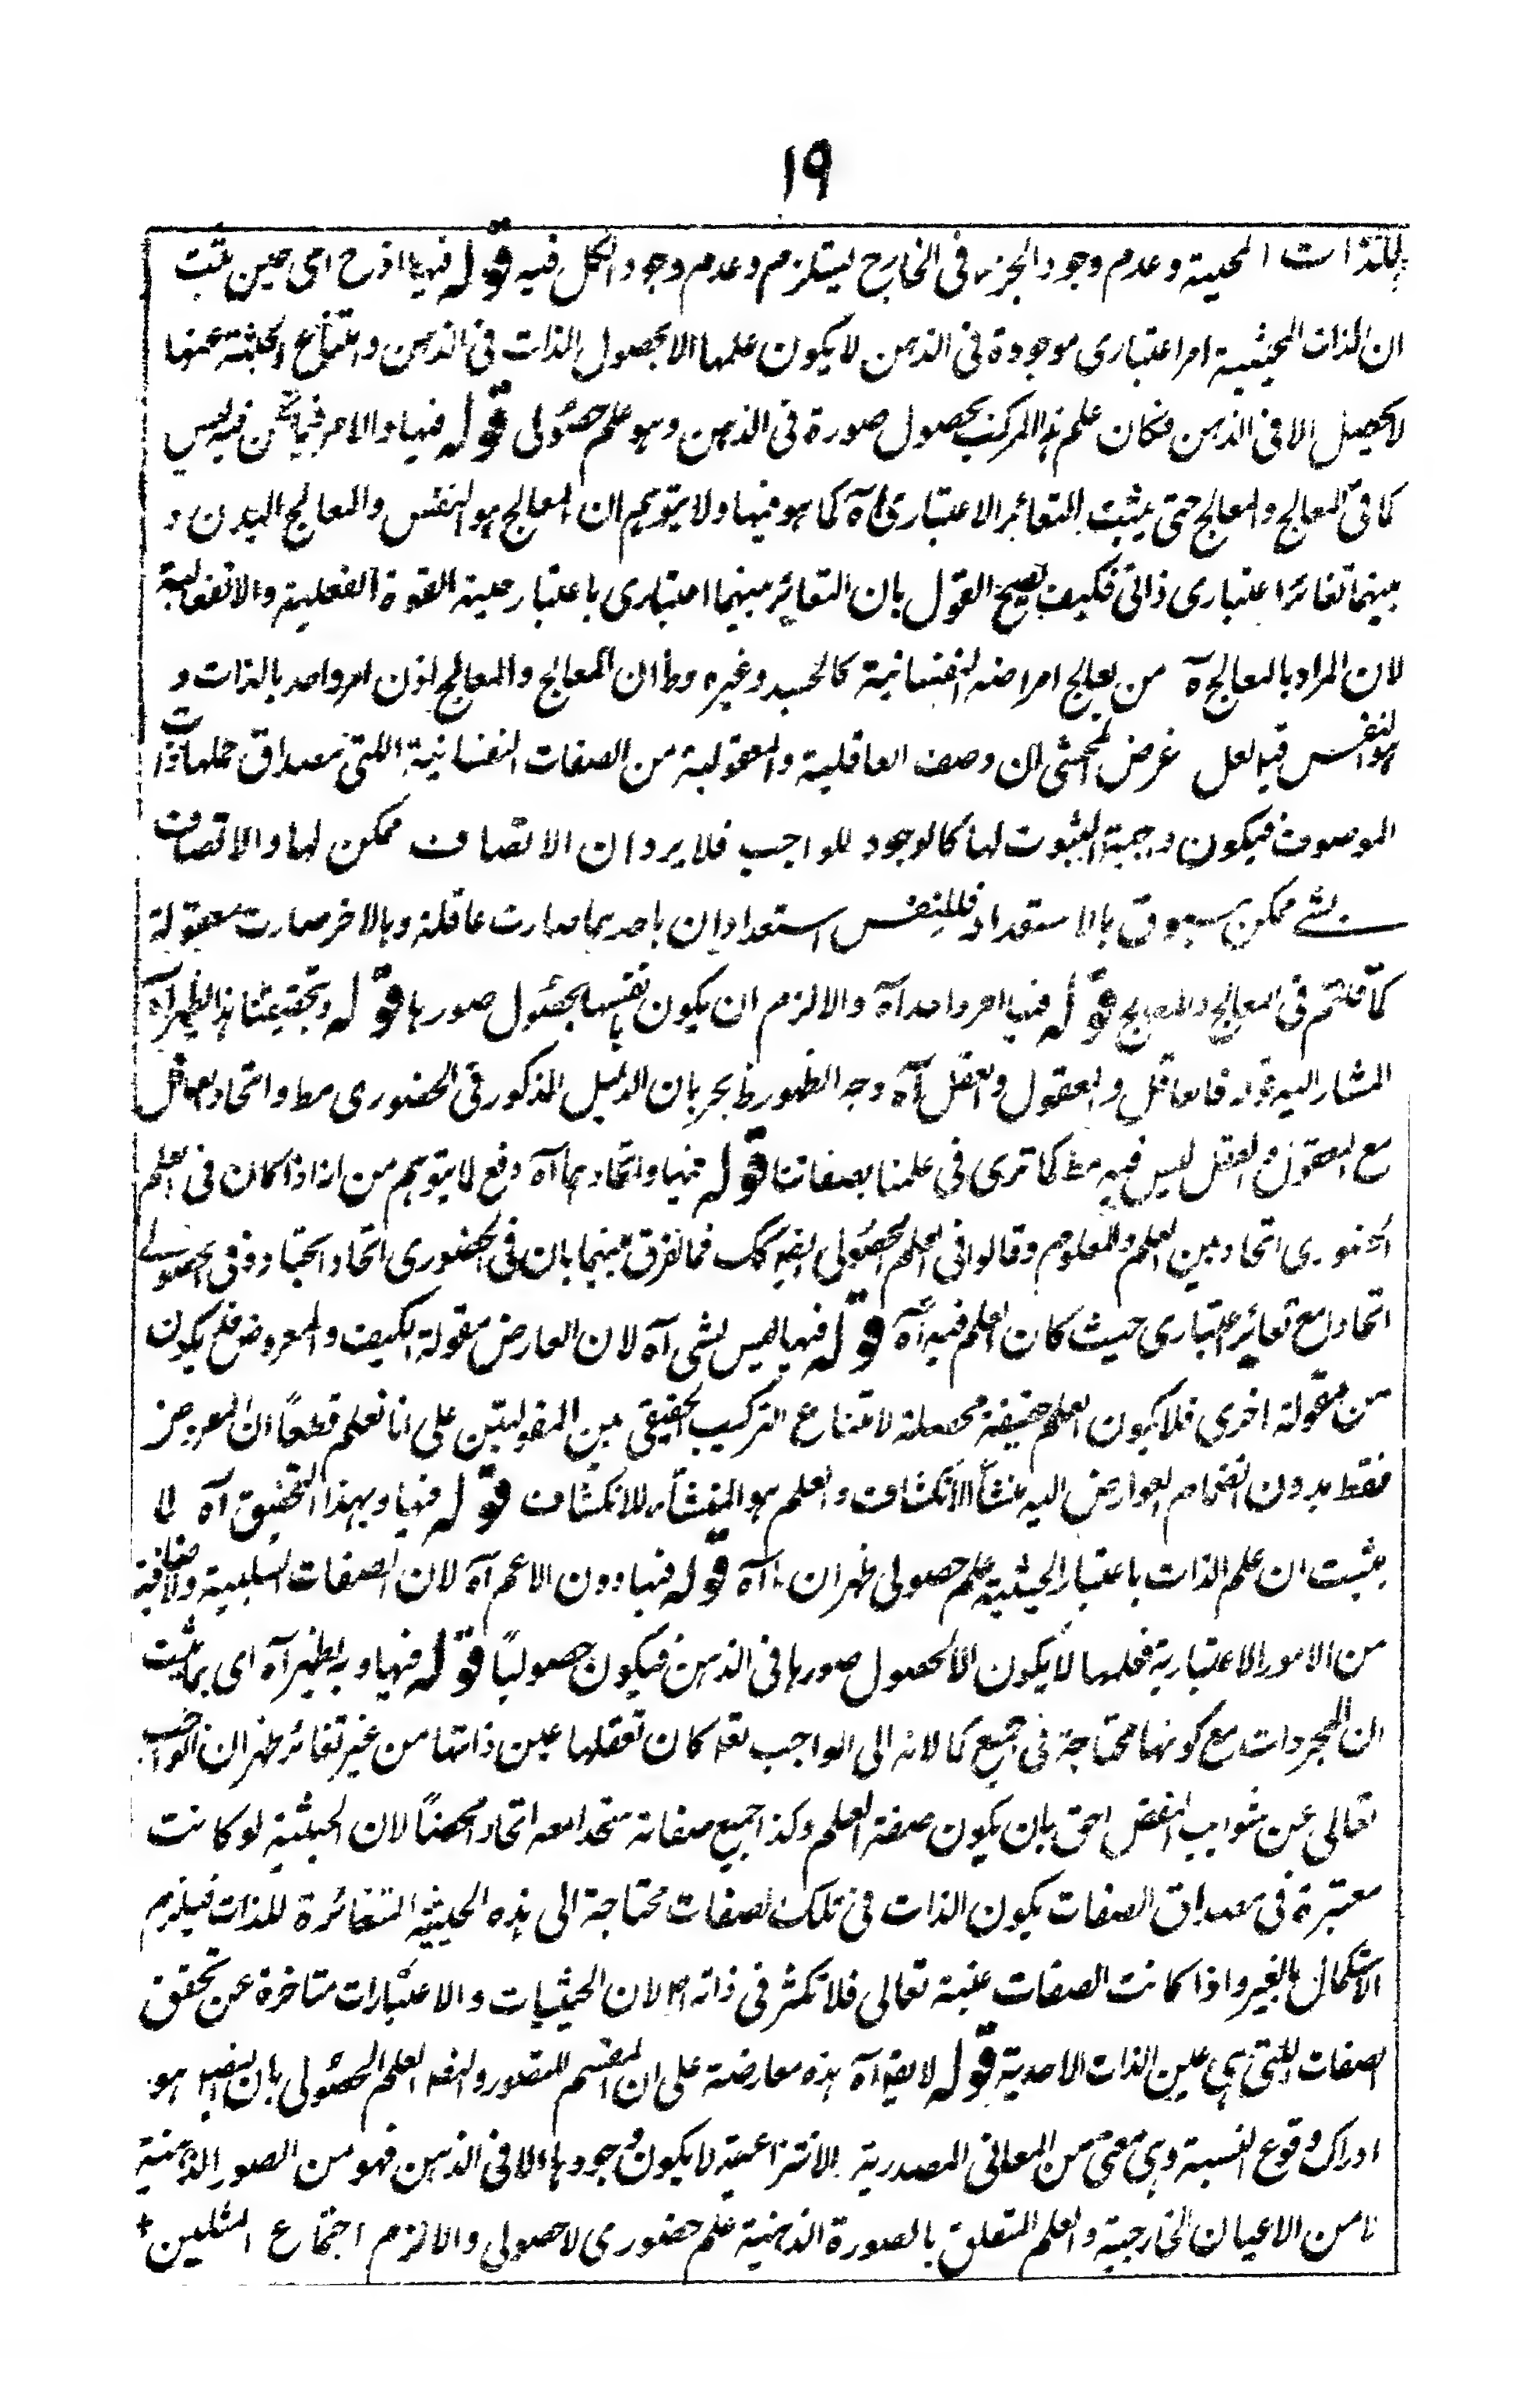 ١٩
للذات المحيثة وعدم وجود الجزء فى الخارج يستلزم وعدم وجود الكل فيه قوله فيها اذ ح اى حين ثبت
ان الذات المحيثية امر اعتبارى موجودة فى الذهن لا يكون علمها الا بحصول الذات فى الذهن وانتزاع الحيثية عنها
لا يحصل الا فى الذهن فكان علم هذا المركب بحصول صورة فى الذهن وهو علم حصولى قوله فيها والامر فيما نحن فيه ليس
كما فى المعالج والمعالج حتى يثبت التغائر الاعتبارى آه كما هو فيها ولا يتوهم ان المعالج هو النفس والمعالج البدن و
بينهما تغائر اعتبارى ذاتى فكيف يصح القول بان التغائر بينهما اعتبارى باعتبار حيثية القوة الفعلية والانفعالية
لان المراد بالمعالج آه من يعالج امراضه النفسانية كالحسد وغيره وظ ان المعالج والمعالج اذن امر واحد بالذات و
هو النفس قيل لعل غرض المحشى ان وصف العاقلية والمعقولية من الصفات النفسانية اللتى مصداق حملها ذات
الموصوف فيكون وجبة الثبوت لها كالوجود للواجب فلا يرد ان الاتصاف ممكن لها والاتصاف
بشئ ممكن مسبوق بالاستعداد فللنفس استعدادان باحدهما صارت عاقلة وبالاخر صارت معقولة
كما قلتم فى المعالج والمعالج قوله فيها امر واحد آه والا لزم ان يكون نفسها بحصول صورها قوله وتحقيقنا هذا ظهر آه
المشار اليه قوله فالعاقل والمعقول والعقل آه وجه الظهور ظ بجريان الدليل المذكور فى الحضورى مط واتحاد العاقل
مع المعقول والعقل ليس فيه مط كما ترى فى علمنا بصفاتنا قوله فيها واتحادهما آه دفع لا يتوهم من انه اذا كان فى العلم
الحضورى اتحاد بين العلم والمعلوم وقالوا فى العلم الحصولى ايضا كك فما الفرق بينهما بان فى الحضورى اتحاد بحتا وفى الحصولى
اتحاد مع تغائر اعتبارى حيث كان العلم فيه آه قوله فيها ليس بشى آه لان العارض مقولة الكيف والمعروض قد يكون
من مقولة اخرى فلا يكون العلم حقيقة محصلة لامتناع التركيب الحقيقى بين المقولتين على انا نعلم قطعًا ان المعروض
فقط بدون انضمام العوارض اليه منشأ الانكشاف والعلم هو المنشأ للانكشاف قوله فيها وبهذا التحقيق آه لما
يثبت ان علم الذات باعتبار الحيثية علم حصولى ظهر ان ما آه قوله فيها دون الاعم آه لان الصفات السلبية والاضافية
من الامور الاعتبارية فعلمها لا يكون الا بحصول صورها فى الذهن فيكون حصوليًا قوله فيها وبه يظهر آه اى بما ثبت
ان المجردات مع كونها محتاجة فى جميع كمالاته الى الواجب تعه كان تعقلها عين ذاتها من غير تغائر ظهر ان الواجب
تعالى عن شوايب النقص احق بان يكون صفة العلم وكذا جميع صفاته متحدا معه اتحادا محضًا لان الحيثية لو كانت
معتبرة فى مصداق الصفات يكون الذات فى تلك الصفات محتاجة الى هذه الحيثية المتغائرة للذات فيلزم
الاستكمال بالغير واذا كانت الصفات عينه تعالى فلا تكثر فى ذاته لان الحيثيات والاعتبارات متاخرة عن تحقق
الصفات اللتى هى عين الذات الاحدية قوله لا يقال آه هذه معارضة على ان المقسم للتصور والتصديق العلم الحصولى بان التصديق هو
ادراك وقوع النسبة وهى معنى من المعانى المصدرية الانتزاعية لا يكون وجودها الا فى الذهن فهو من الصور الذهنية
لا من الاعيان الخارجية والعلم المتعلق بالصورة الذهنية علم حضورى لا حصولى والا لزم اجتماع المثلين